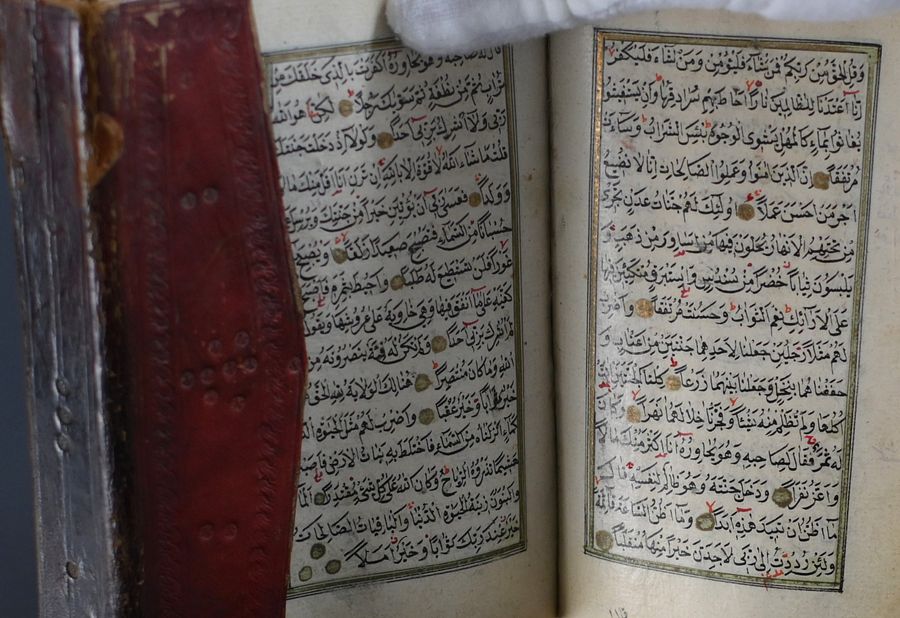 وَقُلِ الْحَقُّ مِنْ رَبِّكُمْ فَمَنْ شَاءَ فَلْيُؤْمِنْ وَمَنْ شَاءَ فَلْيَكْفُرْ
اِنَّا اَعْتَدْنَا لِلظَّالِمِينَ نَارًا اَحَاطَ بِهِمْ سُرَادِقُهَا وَاِنْ يَسْتَغِيثُوا
يُغَاثُوا بِمَاءٍ كَالْمُهْلِ يَشْوِى الْوُجُوهَ بِئْسَ الشَّرَابُ وَسَاءَتْ
مُرْتَفَقًا اِنَّ الَّذِينَ اٰمَنُوا وَعَمِلُوا الصَّالِحَاتِ اِنَّا لَا نُضِيعُ
اَجْرَ مَنْ اَحْسَنَ عَمَلًا اُولٰئِكَ لَهُمْ جَنَّاتُ عَدْنٍ تَجْرِى
مِنْ تَحْتِهِمُ الْاَنْهَارُ يُحَلَّوْنَ فِيهَا مِنْ اَسَاوِرَ مِنْ ذَهَبٍ وَ
يَلْبَسُونَ ثِيَابًا خُضْرًا مِنْ سُنْدُسٍ وَاِسْتَبْرَقٍ مُتَّكِئِينَ فِيهَا
عَلَى الْاَرَائِكِ نِعْمَ الثَّوَابُ وَحَسُنَتْ مُرْتَفَقًا وَاضْرِبْ
لَهُمْ مَثَلًا رَجُلَيْنِ جَعَلْنَا لِاَحَدِهِمَا جَنَّتَيْنِ مِنْ اَعْنَابٍ وَ
حَفَفْنَاهُمَا بِنَخْلٍ وَجَعَلْنَا بَيْنَهُمَا زَرْعًا كِلْتَا الْجَنَّتَيْنِ اٰتَتْ
اُكُلَهَا وَلَمْ تَظْلِمْ مِنْهُ شَيْئًا وَفَجَّرْنَا خِلَالَهُمَا نَهَرًا وَكَانَ
لَهُ ثَمَرٌ فَقَالَ لِصَاحِبِهِ وَهُوَ يُحَاوِرُهُ اَنَا اَكْثَرُ مِنْكَ مَالًا
وَاَعَزُّ نَفَرًا وَدَخَلَ جَنَّتَهُ وَهُوَ ظَالِمٌ لِنَفْسِهِ قَالَ
مَا اَظُنُّ اَنْ تَبِيدَ هٰذِهِ اَبَدًا وَمَا اَظُنُّ السَّاعَةَ قَائِمَةً
وَلَئِنْ رُدِدْتُ اِلٰى رَبِّى لَاَجِدَنَّ خَيْرًا مِنْهَا مُنْقَلَبًا
قَالَ لَهُ صَاحِبُهُ وَهُوَ يُحَاوِرُهُ اَكَفَرْتَ بِالَّذِى خَلَقَكَ مِنْ
تُرَابٍ ثُمَّ مِنْ نُطْفَةٍ ثُمَّ سَوّٰيكَ رَجُلًا لٰكِنَّا هُوَ اللّٰهُ
رَبِّى وَلَا اُشْرِكُ بِرَبِّى اَحَدًا وَلَوْلَا اِذْ دَخَلْتَ جَنَّتَكَ
قُلْتَ مَا شَاءَ اللّٰهُ لَا قُوَّةَ اِلَّا بِاللّٰهِ اِنْ تَرَنِ اَنَا اَقَلَّ مِنْكَ مَالًا
وَوَلَدًا فَعَسٰى رَبِّى اَنْ يُؤْتِيَنِ خَيْرًا مِنْ جَنَّتِكَ وَيُرْسِلَ
حُسْبَانًا مِنَ السَّمَاءِ فَتُصْبِحَ صَعِيدًا زَلَقًا اَوْ يُصْبِحَ
غَوْرًا فَلَنْ تَسْتَطِيعَ لَهُ طَلَبًا وَاُحِيطَ بِثَمَرِهِ فَاَصْبَحَ
كَفَّيْهِ عَلٰى مَا اَنْفَقَ فِيهَا وَهِىَ خَاوِيَةٌ عَلٰى عُرُوشِهَا وَيَقُولُ
لَمْ اُشْرِكْ بِرَبِّى اَحَدًا وَلَمْ تَكُنْ لَهُ فِئَةٌ يَنْصُرُونَهُ مِنْ
اللّٰهِ وَمَا كَانَ مُنْتَصِرًا هُنَالِكَ الْوَلَايَةُ لِلّٰهِ الْحَقِّ
خَيْرٌ ثَوَابًا وَخَيْرٌ عُقْبًا وَاضْرِبْ لَهُمْ مَثَلَ الْحَيٰوةِ
كَمَاءٍ اَنْزَلْنَاهُ مِنَ السَّمَاءِ فَاخْتَلَطَ بِهِ نَبَاتُ الْاَرْضِ فَاَصْبَحَ
هَشِيمًا تَذْرُوهُ الرِّيَاحُ وَكَانَ اللّٰهُ عَلٰى كُلِّ شَىْءٍ مُقْتَدِرًا اَلْمَالُ
وَالْبَنُونَ زِينَةُ الْحَيٰوةِ الدُّنْيَا وَالْبَاقِيَاتُ الصَّالِحَاتُ
خَيْرٌ عِنْدَ رَبِّكَ ثَوَابًا وَخَيْرٌ اَمَلًا